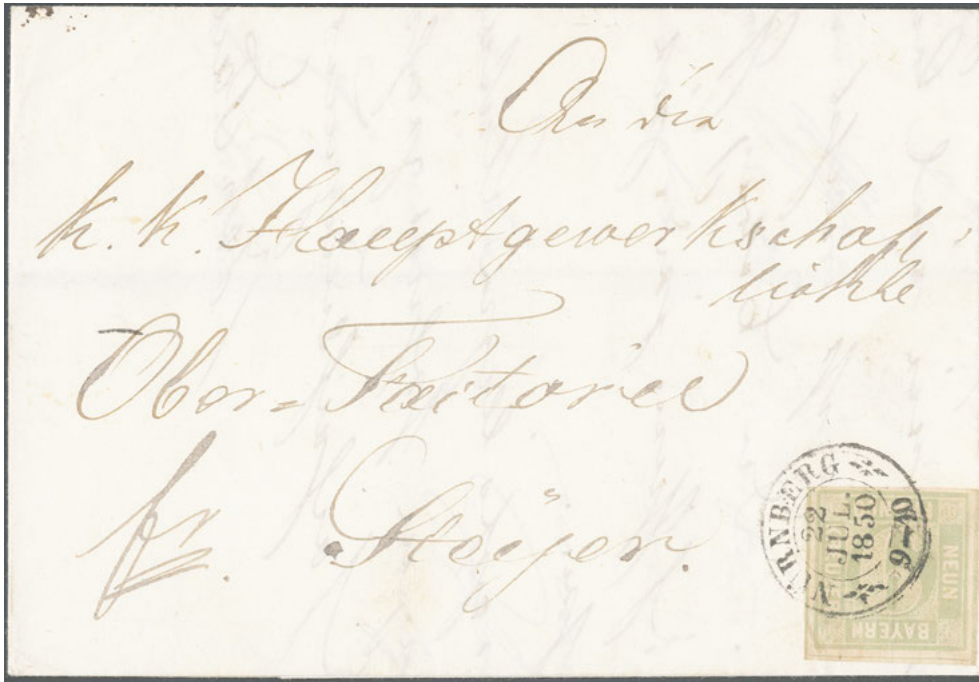 An die
k. k. Hauptgewerkschaft,
liche
Ober=Faktorie
fr. Steÿer.
NÜRNBERG
22
JUL.
1850
9-10
NEUN
BAYERN